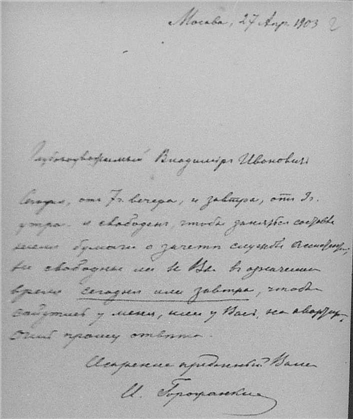 Москва, 27 Апр. 1903
Глубокоуважаемый Владимиръ Ивановичъ
Сегодня, отъ 7 ч. вечера, и завтра, отъ 9 ч.
утра я свободенъ, чтобъ заняться составле
ніемъ бумаги о зачетѣ службы
свободны ли и Вы въ
время сегодня или завтра, чтобъ
сойтись у меня, или у Васъ на квартирѣ,
прошу отвѣта.
Искренне преданный Вамъ
И.